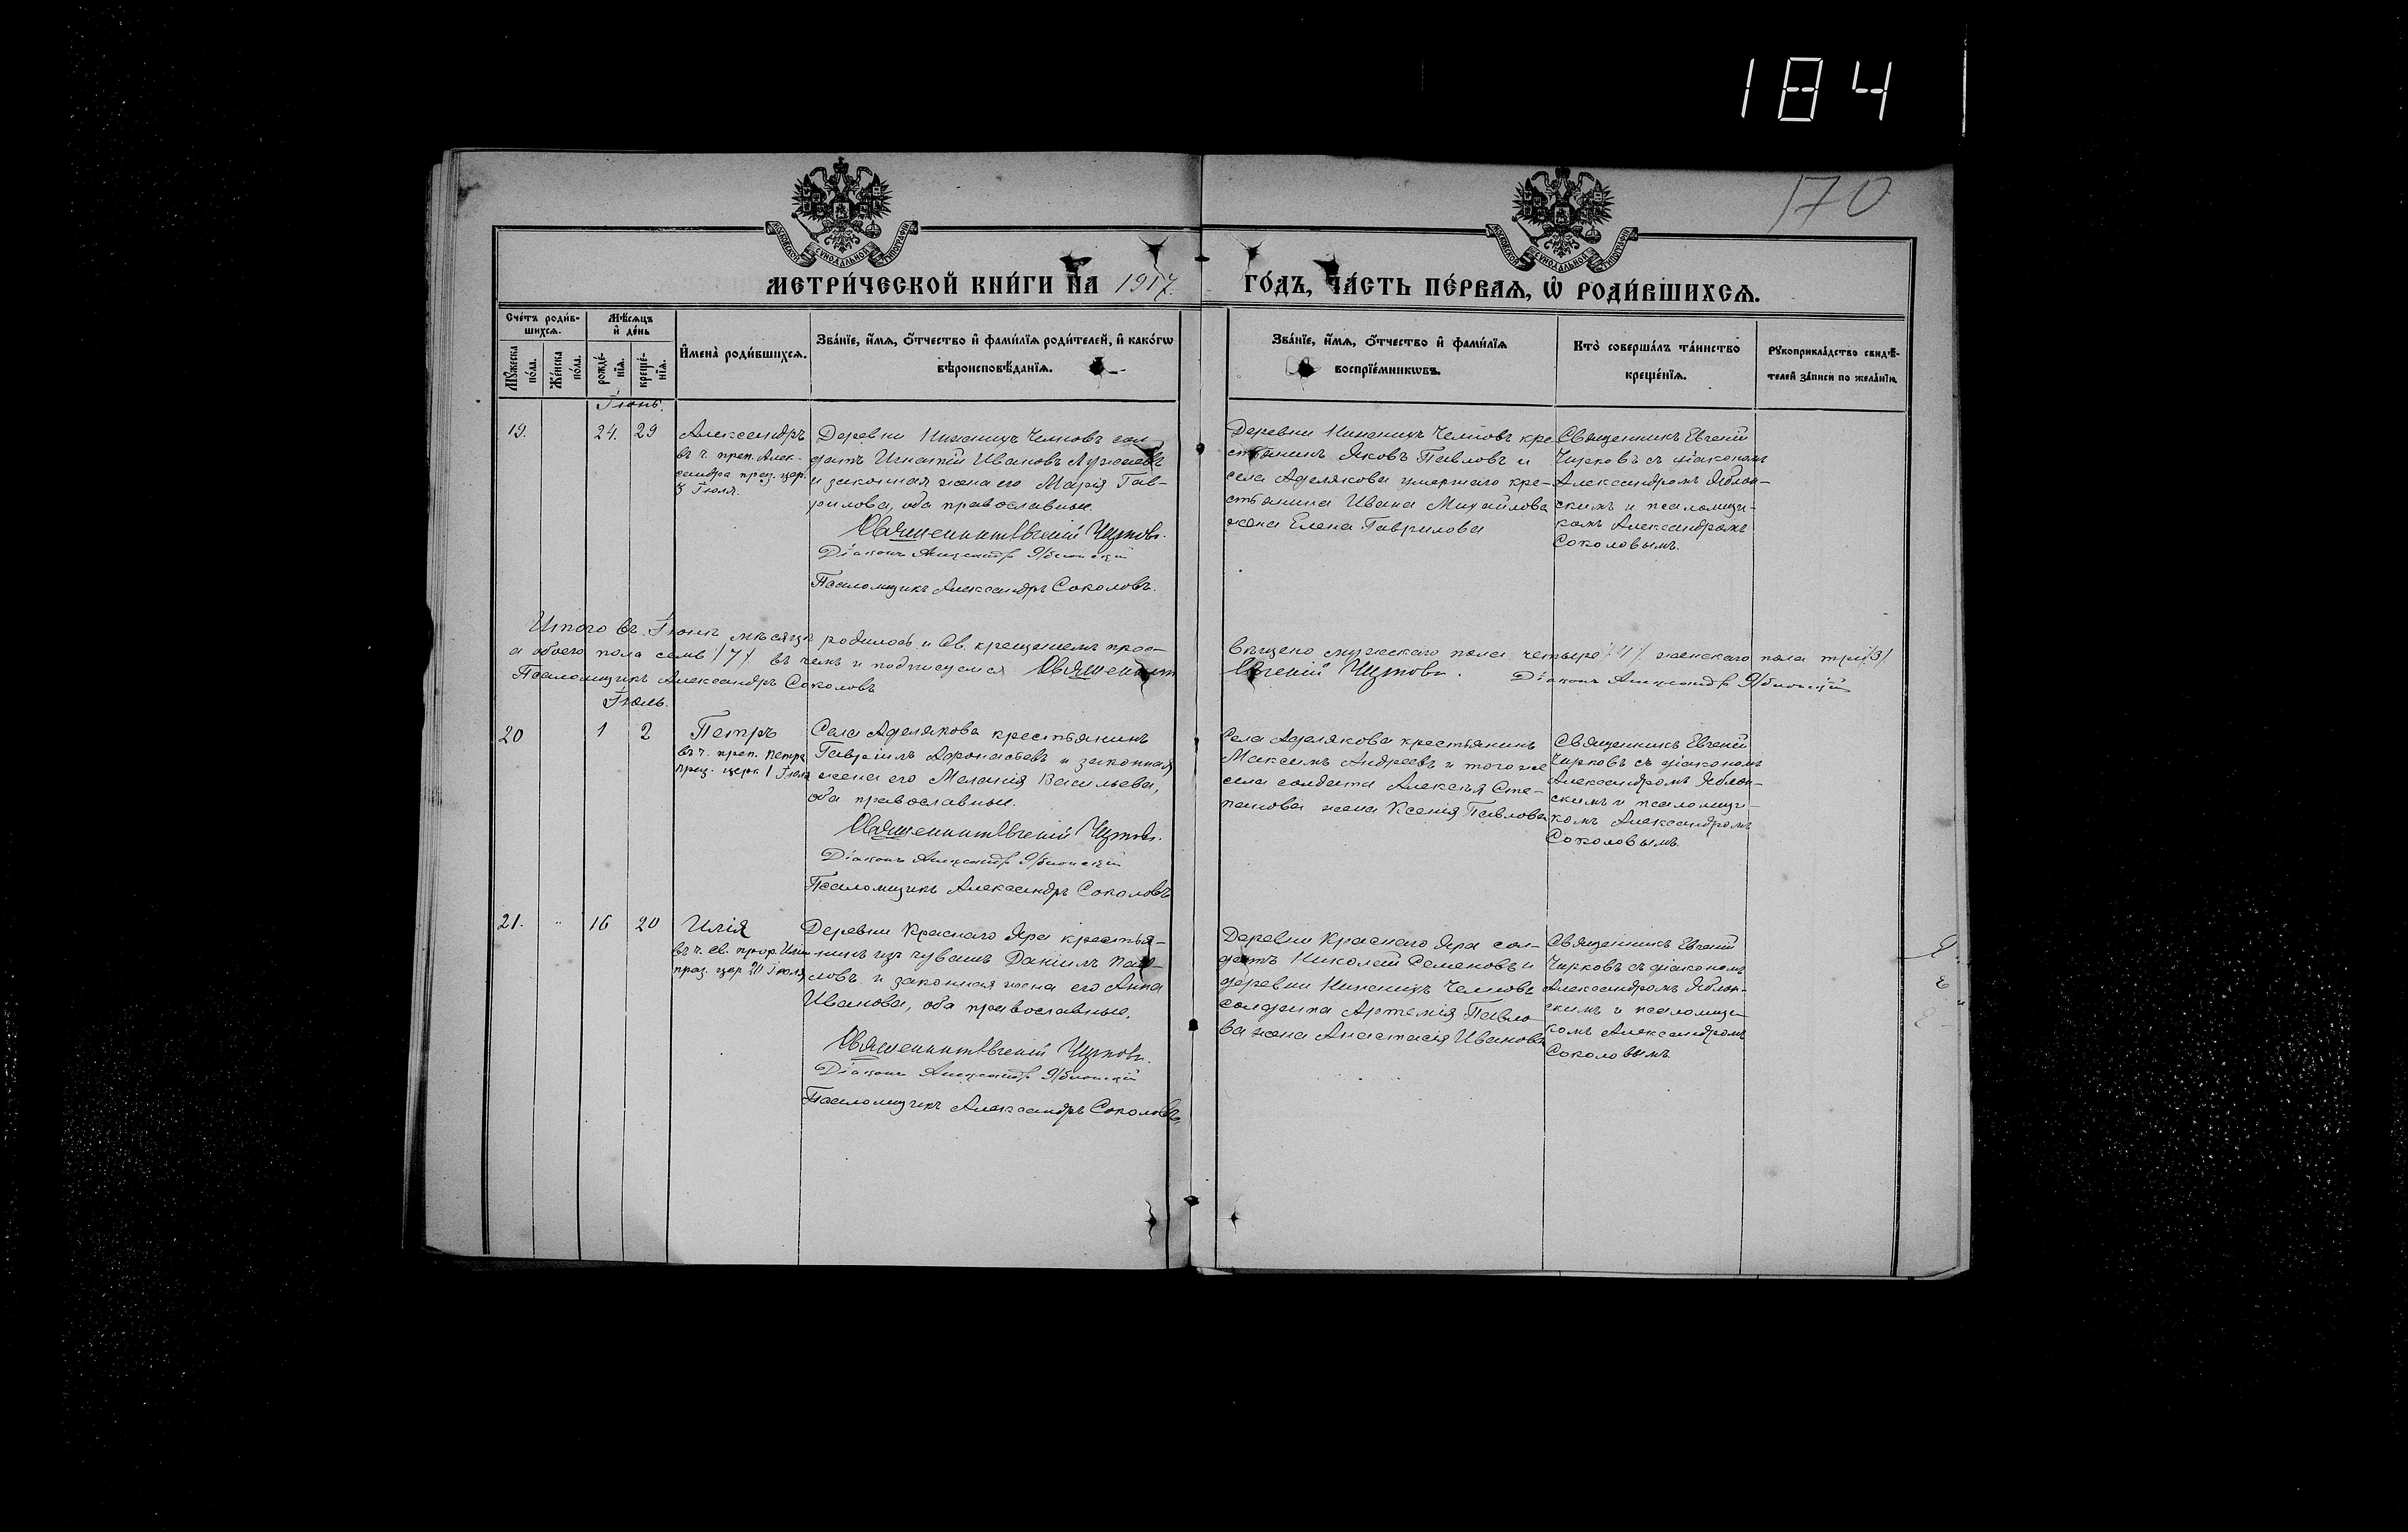 184
170
МОСКОВСКОЙ СУНОДАЛЬНОЙ ТИПОГРАФІИ
МОСКОВСКОЙ СУНОДАЛЬНОЙ ТИПОГРАФІИ
МЕТРИ́ЧЕСКОЙ КНИ́ГИ НА 1917 ГО́ДЪ, ЧА́СТЬ ПЕ́РВАѦ, Ѡ РОДИ́ВШИХСѦ.
Сче́тъ роди́в-
шихсѧ.
Мꙋ́жеска по́ла.
Же́нска по́ла.
Мѣ́сѧцъ и҆ де́нь
рожде́-
нїѧ.
креще́-
нїѧ.
И҆мена̀ роди́вшихсѧ.
Зва́нїе, и҆́мѧ, ѻ҆́тчество и҆ фами́лїѧ роди́телей, и҆ како́гѡ
вѣроисповѣ́данїѧ.
Зва́нїе, и҆́мѧ, ѻ҆́тчество и҆ фами́лїѧ
воспрїе́мникѡвъ.
Кто̀ соверша́лъ та́инство
креще́нїѧ.
Рꙋкоприкла́дство свидѣ́-
телей за́писи по жела́нїю.
Іюнь.
19. 24. 29
Александръ
въ ч. преп. Алек-
сандра праз. цер.
Іюля.
Деревни Нижнихъ Челновъ сол-
датъ Игнатій Ивановъ
и законная жена его Марія Гав-
рилова, оба православные.
Священникъ Евгеній Чирковъ.
Діаконъ Александръ Яблонскій
Псаломщикъ Александръ Соколовъ.
Деревни Нижнихъ Челновъ кре-
стьянинъ Яковъ Павловъ и
села Аделякова умершаго кре-
стьянина Ивана Михайлова
жена Елена Гаврилова
Священникъ Евгеній
Чирковъ съ діакономъ
Александромъ Яблон-
скимъ и псаломщи-
комъ Александромъ
Соколовымъ.
Итого въ Іюнѣ мѣсяцѣ родилось и Св. крещеніемъ прос-
вѣщено мужескаго пола четыре /4/ женскаго пола три /3/
а обоего пола семь /7/ въ чемъ и подписуемся Священникъ
Евгеній Чирковъ. Діаконъ Александръ Яблонскій
Псаломщикъ Александръ Соколовъ
Іюль.
20 1 2
Петръ
въ ч. преп. Петра
праз. церк. 1 Іюля
Села Аделякова крестьянинъ
Гавріилъ Афонасьевъ и законная
жена его Меланія Васильева,
оба православные.
Священникъ Евгеній Чирковъ.
Діаконъ Александръ Яблонскій
Псаломщикъ Александръ Соколовъ
Села Аделякова крестьянинъ
Максимъ Андреевъ и того же
села солдата Алексѣя Сте-
панова жена Ксенія Павлова
Священникъ Евгеній
Чирковъ съ діакономъ
Александромъ Яблон-
скимъ и псаломщи-
комъ Александромъ
Соколовымъ.
21. 16 20
Илія
въ ч. св. прор. Иліи
праз. цер 20 Іюля
Деревни Краснаго Яра крестья-
нинъ изъ чувашъ Даніилъ Пав-
ловъ и законная жена его Анна
Иванова, оба православные.
Священникъ Евгеній Чирковъ.
Діаконъ Александръ Яблонскій
Псаломщикъ Александръ Соколовъ.
Деревни Краснаго Яра сол-
датъ Николай Семеновъ и
деревни Нижнихъ Челновъ
солдата Артемія Павло
ва жена Анастасія Иванова
Священникъ Евгеній
Чирковъ съ діакономъ
Александромъ Яблон-
скимъ и псаломщи-
комъ Александромъ
Соколовымъ.